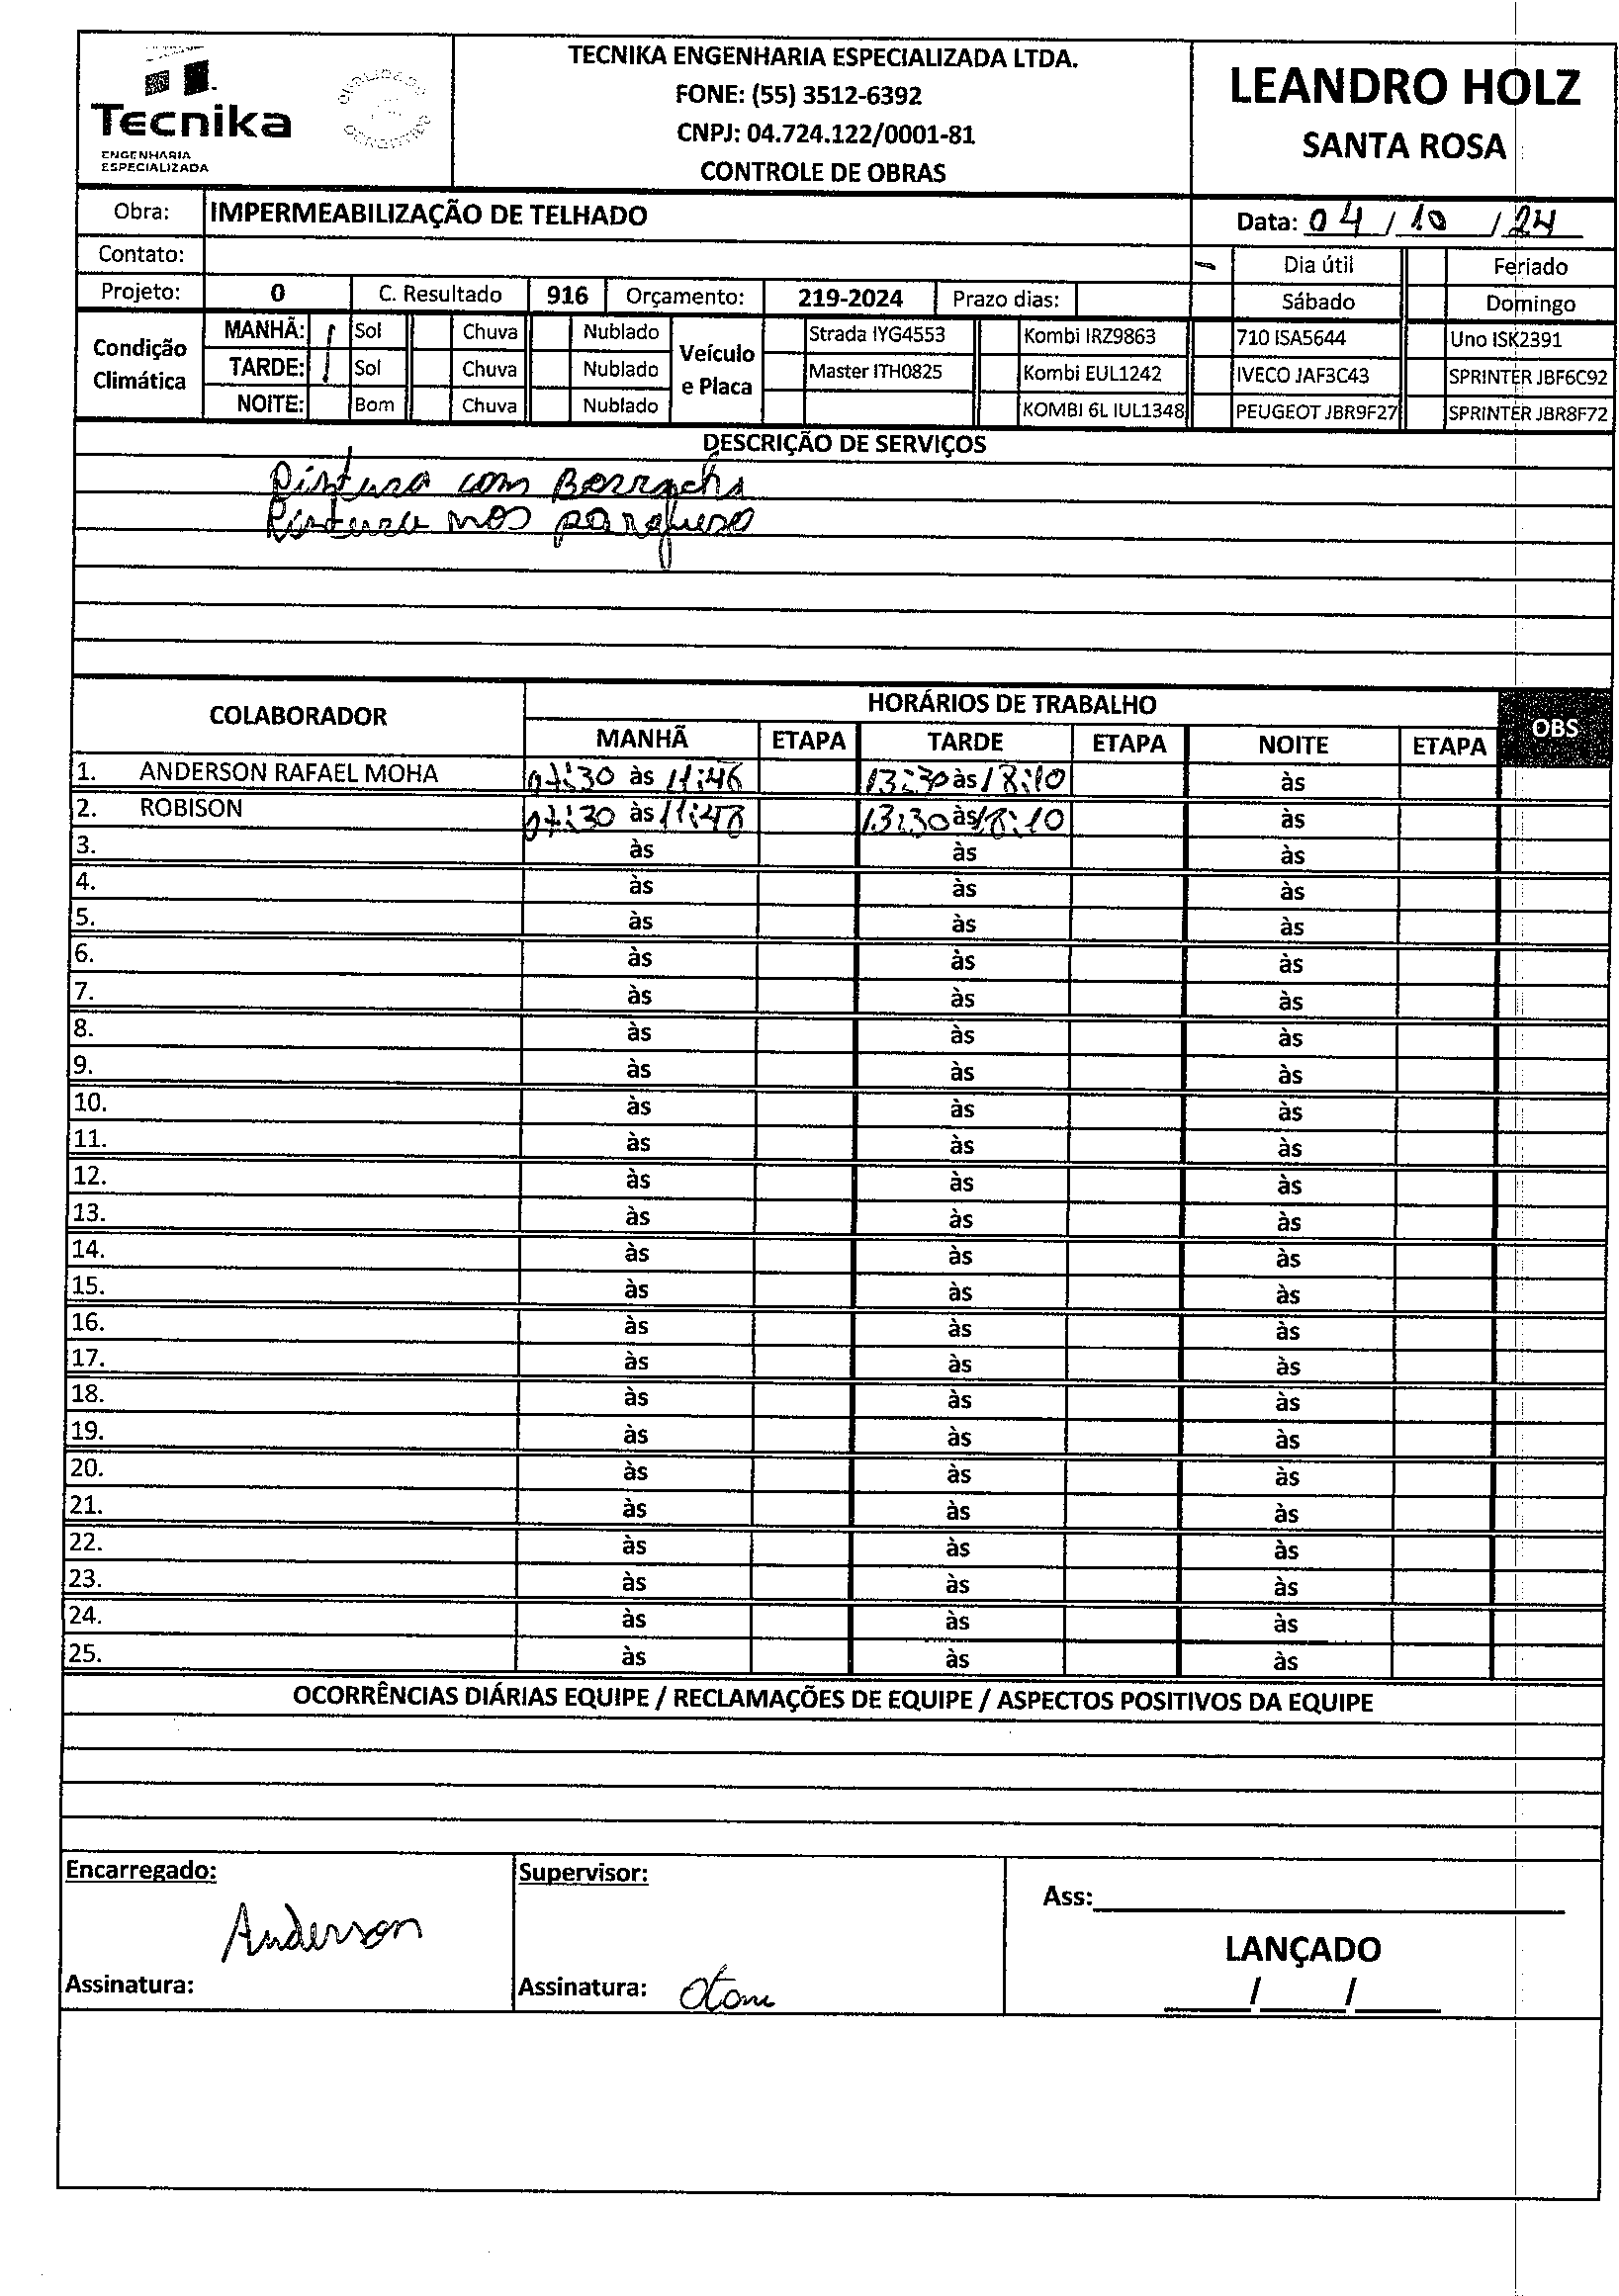 Tecnika
ENGENHARIA
ESPECIALIZADA
TECNIKA ENGENHARIA ESPECIALIZADA LTDA.
FONE: (55) 3512-6392
CNPJ: 04.724.122/0001-81
CONTROLE DE OBRAS
LEANDRO HOLZ
SANTA ROSA
Obra: IMPERMEABILIZAÇÃO DE TELHADO
Data: 04 / 10 / 24
Contato:
Dia útil Feriado
Projeto: 0 C. Resultado 916 Orçamento: 219-2024 Prazo dias:
Sábado Domingo
Condição Climática
MANHÃ: Sol Chuva Nublado
TARDE: Sol Chuva Nublado
NOITE: Bom Chuva Nublado
Veículo e Placa
Strada IYG4553 Kombi IRZ9863 710 ISA5644 Uno ISK2391
Master ITH0825 Kombi EUL1242 IVECO JAF3C43 SPRINTER JBF6C92
KOMBI 6L IUL1348 PEUGEOT JBR9F27 SPRINTER JBR8F72
DESCRIÇÃO DE SERVIÇOS
Pintura com Borracha
Pintura nos parafuso
COLABORADOR HORÁRIOS DE TRABALHO OBS
MANHÃ ETAPA TARDE ETAPA NOITE ETAPA
1. ANDERSON RAFAEL MOHA 07:30 às 11:48 13:30 às 18:10 às
2. ROBISON 07:30 às 11:48 13:30 às 18:10 às
3. às às às
4. às às às
5. às às às
6. às às às
7. às às às
8. às às às
9. às às às
10. às às às
11. às às às
12. às às às
13. às às às
14. às às às
15. às às às
16. às às às
17. às às às
18. às às às
19. às às às
20. às às às
21. às às às
22. às às às
23. às às às
24. às às às
25. às às às
OCORRÊNCIAS DIÁRIAS EQUIPE / RECLAMAÇÕES DE EQUIPE / ASPECTOS POSITIVOS DA EQUIPE
Encarregado:
Anderson
Assinatura:
Supervisor:
Assinatura:
Ass:
LANÇADO
/ /